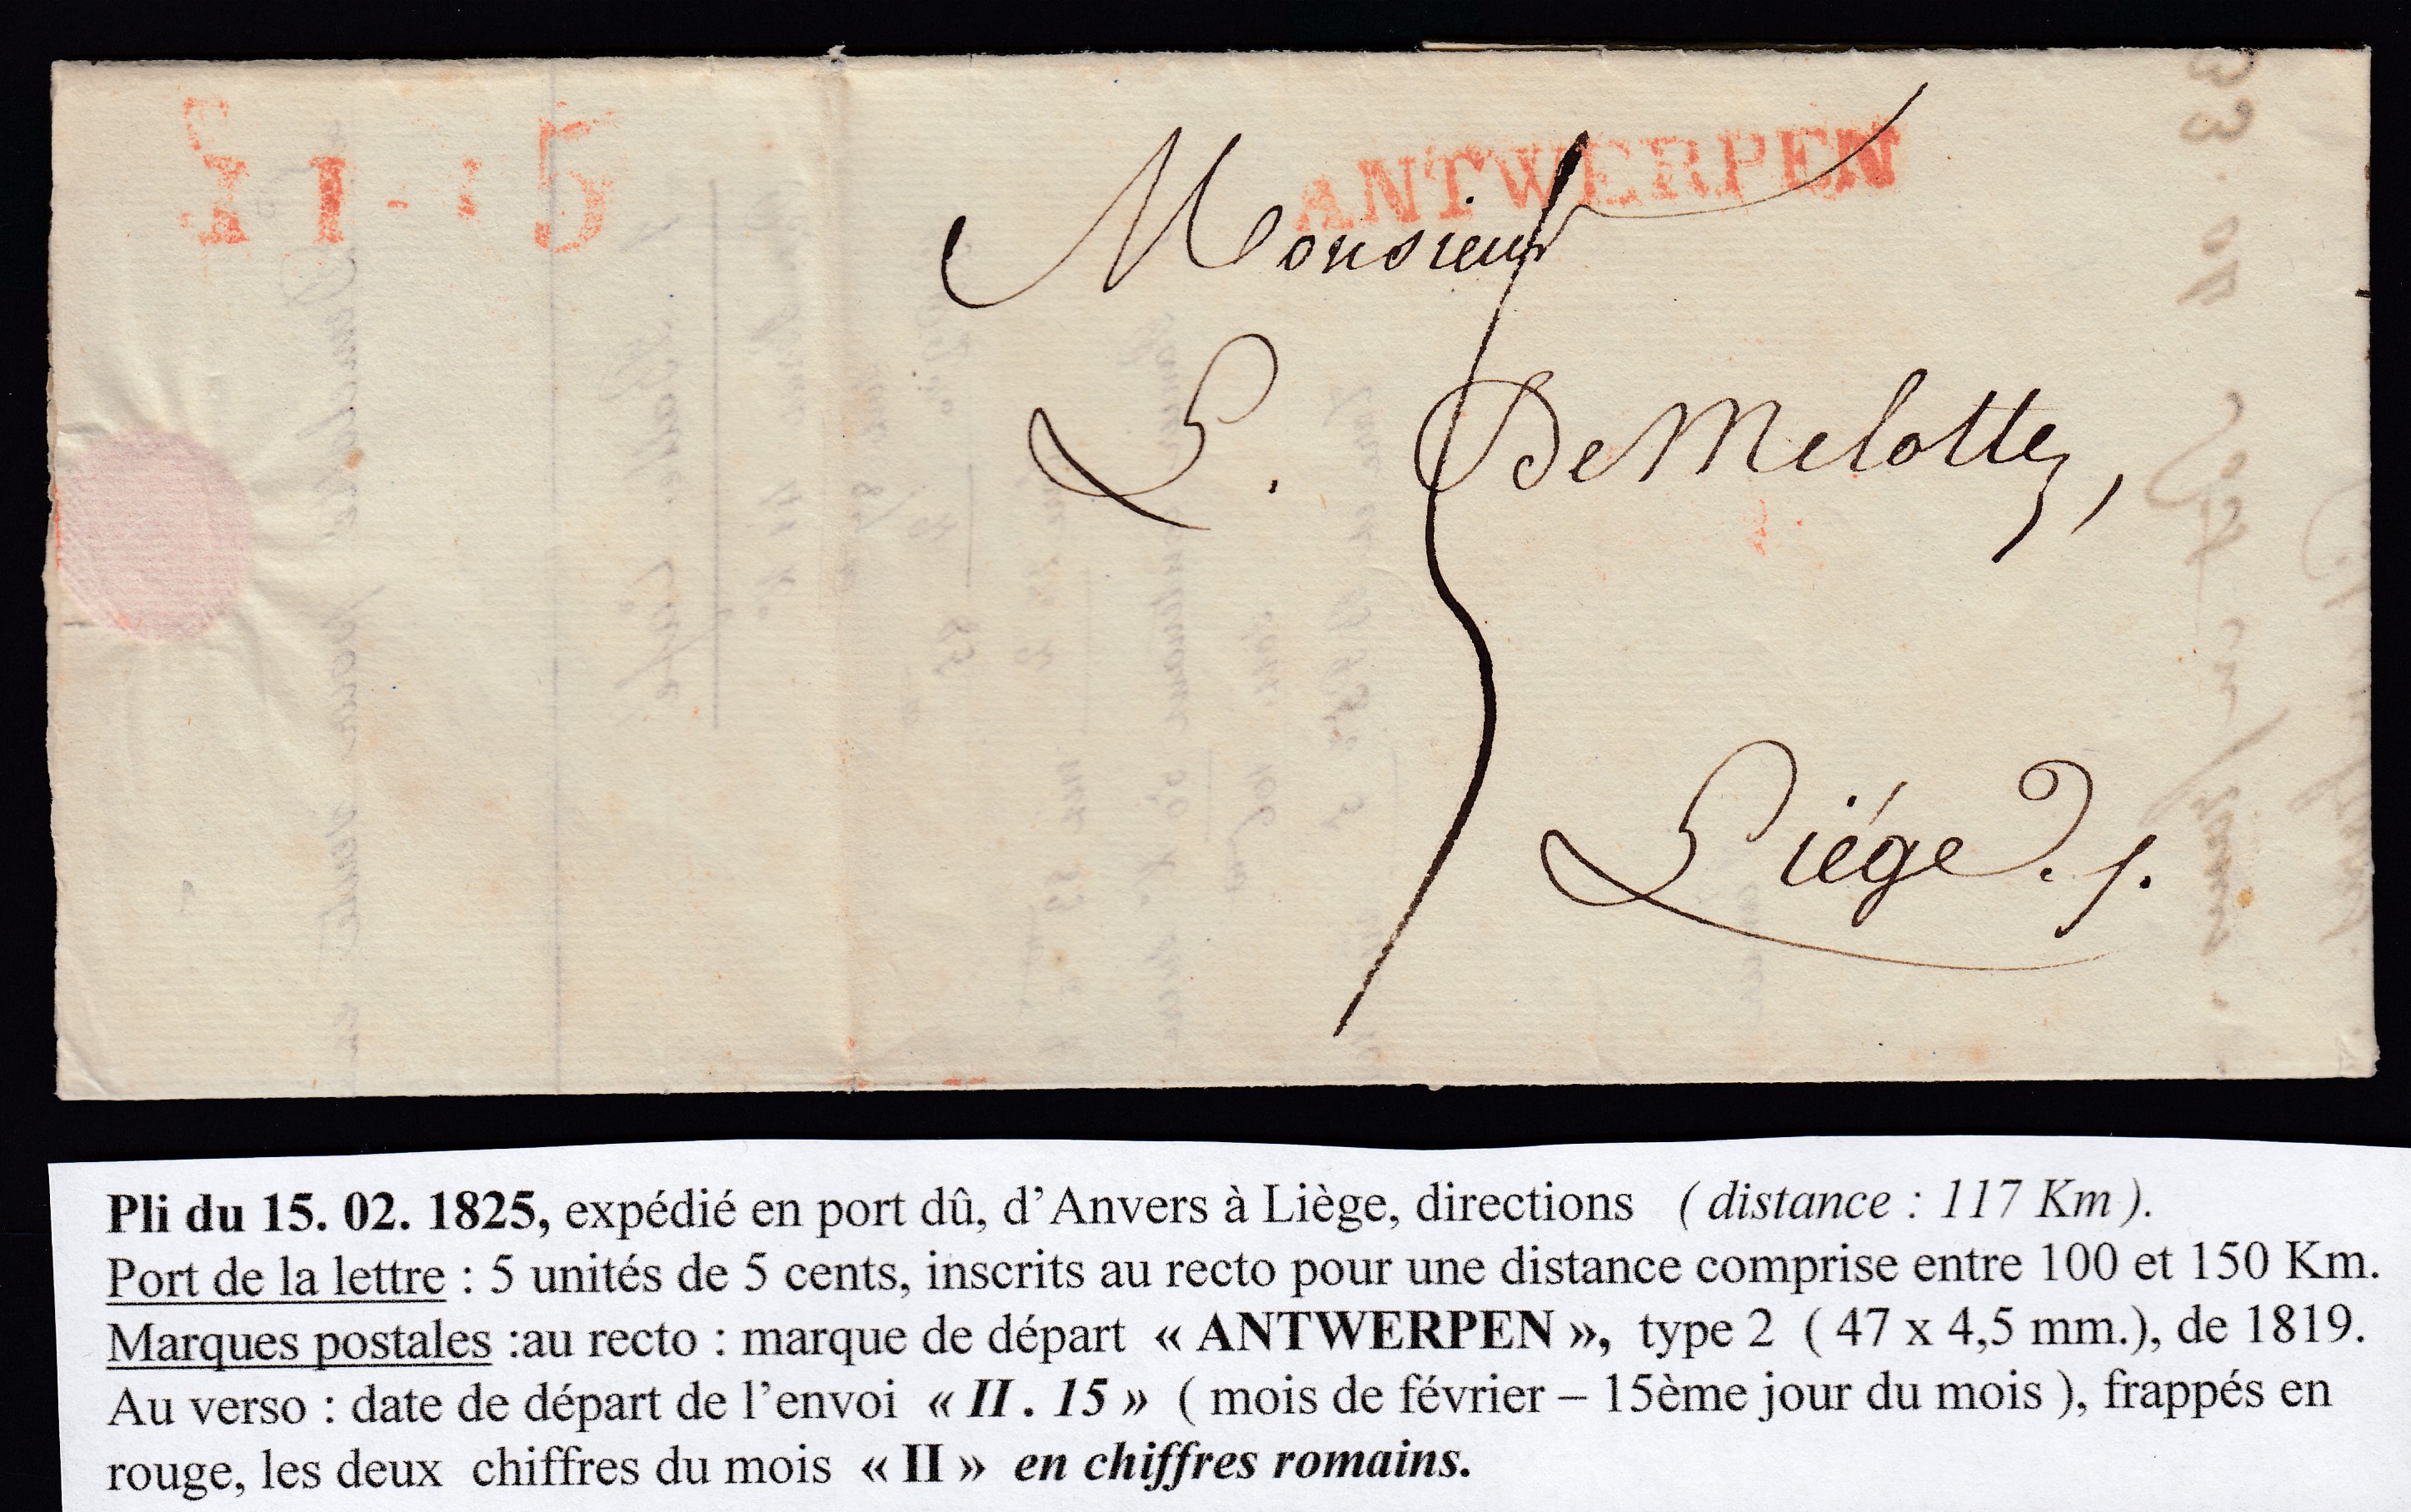 II - 15
ANTWERPEN
Monsieur
L. DeMelotte,
Liége.
5
Pli du 15. 02. 1825, expédié en port dû, d’Anvers à Liège, directions ( distance : 117 Km ).
Port de la lettre : 5 unités de 5 cents, inscrits au recto pour une distance comprise entre 100 et 150 Km.
Marques postales :au recto : marque de départ « ANTWERPEN », type 2 ( 47 x 4,5 mm.), de 1819.
Au verso : date de départ de l’envoi « II . 15 » ( mois de février – 15ème jour du mois ), frappés en
rouge, les deux chiffres du mois « II » en chiffres romains.